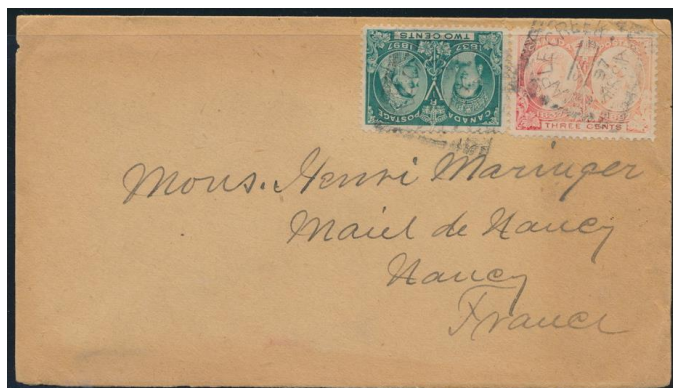 TWO CENTS
1837 1897
CANADA POSTAGE
THREE CENTS
Mons. Henri Maringer
Maiel de Nancy
Nancy
France